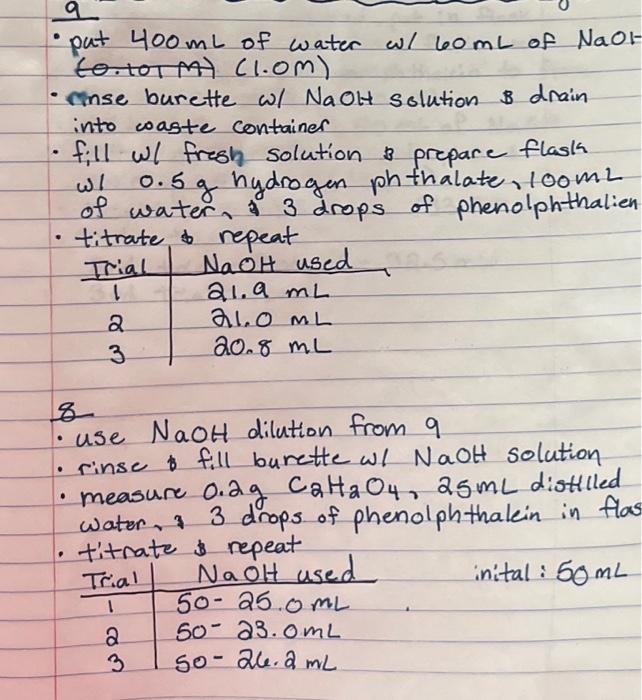 9
• put 400mL of water w/ 60mL of NaOH
(0.101 M) (1.0M)
• rinse burette w/ NaOH solution & drain
into waste container
• fill w/ fresh solution & prepare flask
w/ 0.5g hydrogen phthalate, 100mL
of water, & 3 drops of phenolphthalien
• titrate & repeat
Trial | NaOH used
1 | 21.9 mL
2 | 21.0 mL
3 | 20.8 mL
8
• use NaOH dilution from 9
• rinse & fill burette w/ NaOH solution
• measure 0.2g C2H2O4, 25mL distilled
water, & 3 drops of phenolphthalein in flas
• titrate & repeat
Trial | NaOH used inital: 50mL
1 | 50- 25.0mL
2 | 50- 23.0mL
3 | 50- 26.2 mL